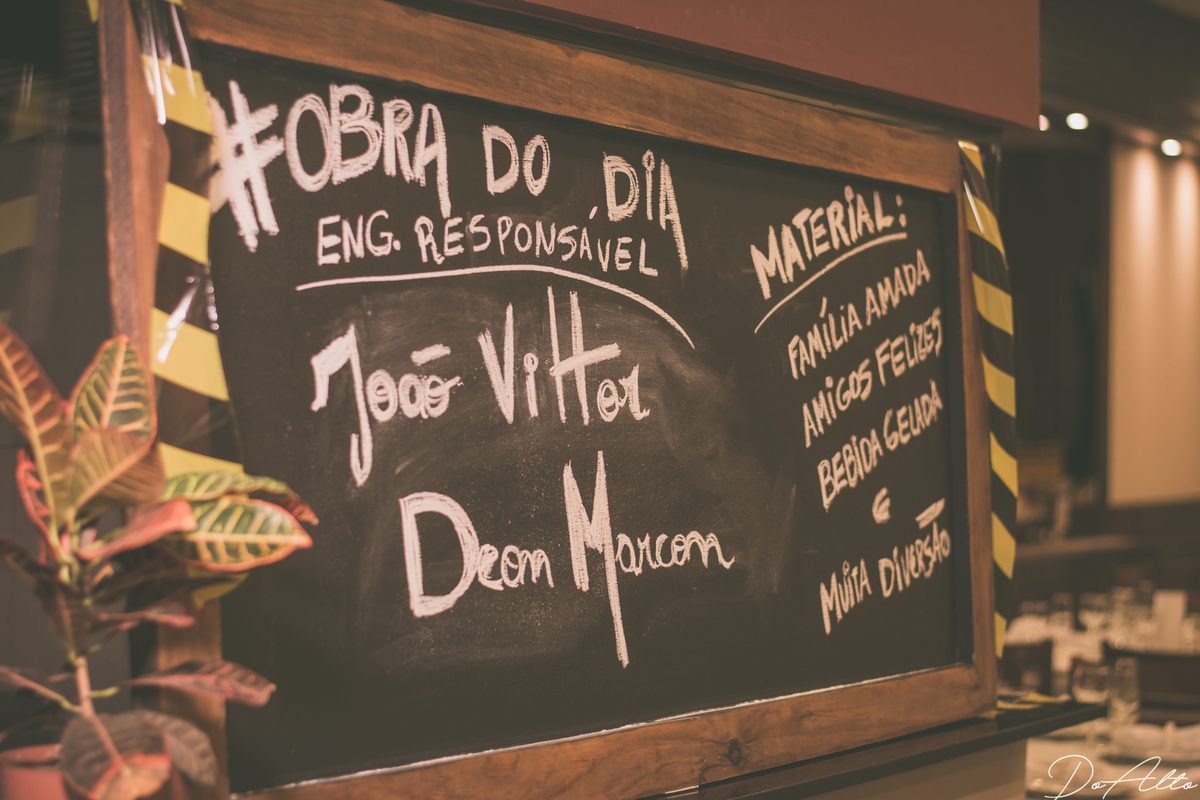 #OBRA DO DIA
ENG. RESPONSÁVEL
João Vittor
Deon Marcon
MATERIAL:
FAMÍLIA AMADA
AMIGOS FELIZES
BEBIDA GELADA
E
MUITA DIVERSÃO
DoAlto